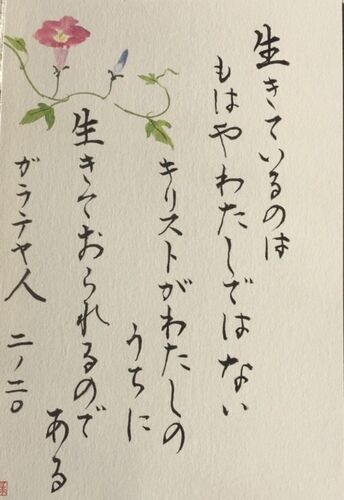 生きているのは
もはやわたしではない
キリストがわたしの
うちに
生きておられるので
ある
ガラテヤ人 二ノ二〇